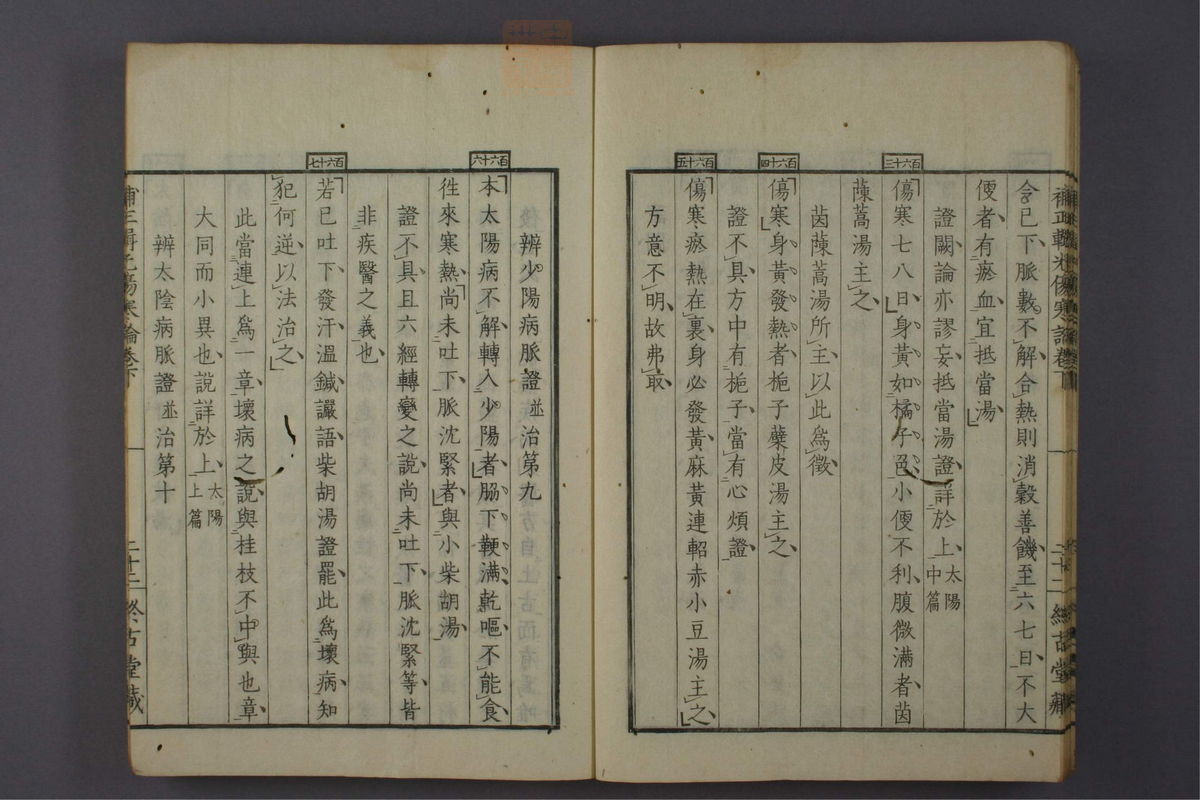 令已下、脈數不解合熱則消穀善饑至六七日不大
便者有瘀血宜抵當湯
證闕論亦謬妄抵當湯證詳於上太陽中篇
百六十三
傷寒七八日身黃如橘子色小便不利腹微滿者茵
蔯蒿湯主之
茵蔯蒿湯所主以此爲徵
百六十四
傷寒身黃發熱者梔子蘗皮湯主之
證不具方中有梔子當有心煩證
百六十五
傷寒瘀熱在裏身必發黃麻黃連軺赤小豆湯主之
方意不明故弗取
辨少陽病脈證並治第九
百六十六
本太陽病不解轉入少陽者脇下鞕滿乾嘔不能食
徃來寒熱尚未吐下脈沈緊者與小柴胡湯
證不具且六經轉變之說尚未吐下脈沈緊等皆
非疾醫之義也
百六十七
若已吐下發汗溫鍼讝語柴胡湯證罷此爲壞病知
犯何逆以法治之
此當連上爲一章壞病之說與桂枝不中與也章
大同而小異也說詳於上太陽上篇
辨太陰病脈證並治第十
傷寒論卷下
二十二
終古堂藏